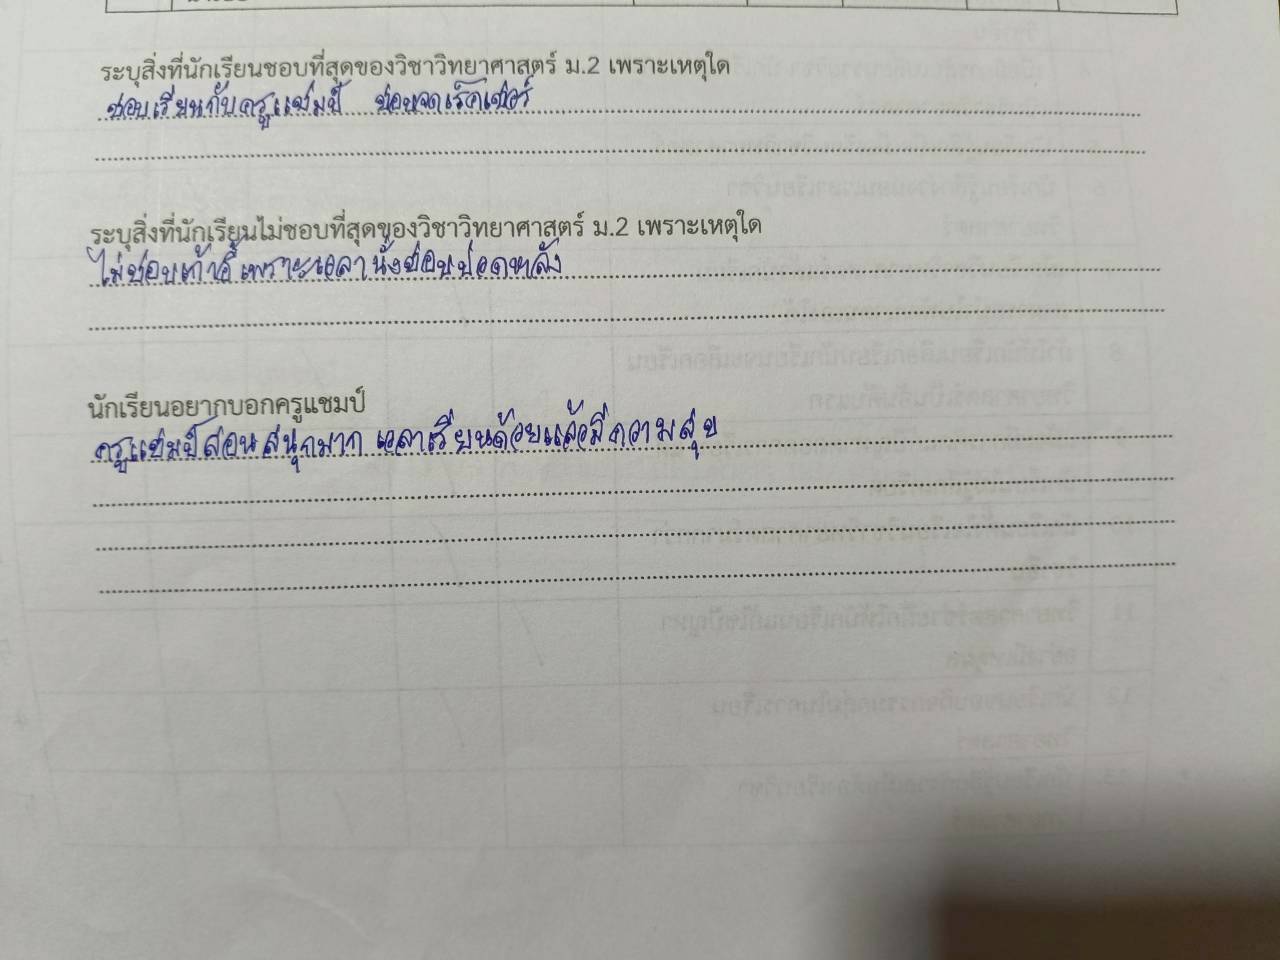 ระบุสิ่งที่นักเรียนชอบที่สุดของวิชาวิทยาศาสตร์ ม.2 เพราะเหตุใด
ชอบเรียนกับครูแชมป์ ชอบจดเร็คเชอร์
ระบุสิ่งที่นักเรียนไม่ชอบที่สุดของวิชาวิทยาศาสตร์ ม.2 เพราะเหตุใด
ไม่ชอบเก้าอี้เพราะเวลานั่งชอบปวดหลัง
นักเรียนอยากบอกครูแชมป์
ครูแชมป์สอนสนุกมาก เวลาเรียนด้วยแล้วมีความสุข